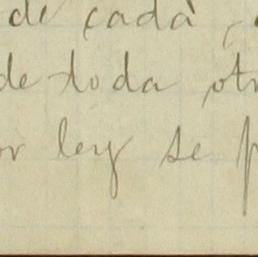 de cadà
de toda otr
or ley se p